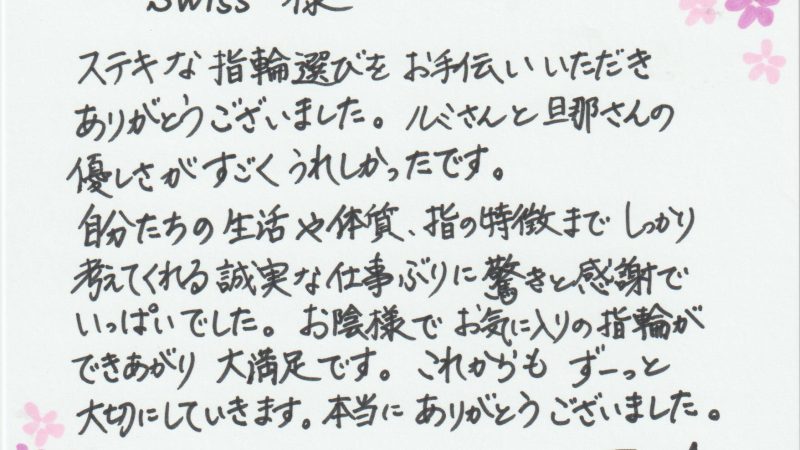 Swiss 様
ステキな指輪選びをお手伝いいただき
ありがとうございました。ルミさんと旦那さんの
優しさがすごくうれしかったです。
自分たちの生活や体質、指の特徴までしっかり
考えてくれる誠実な仕事ぶりに驚きと感謝で
いっぱいでした。お陰様でお気に入りの指輪が
できあがり大満足です。これからもずーっと
大切にしていきます。本当にありがとうございました。